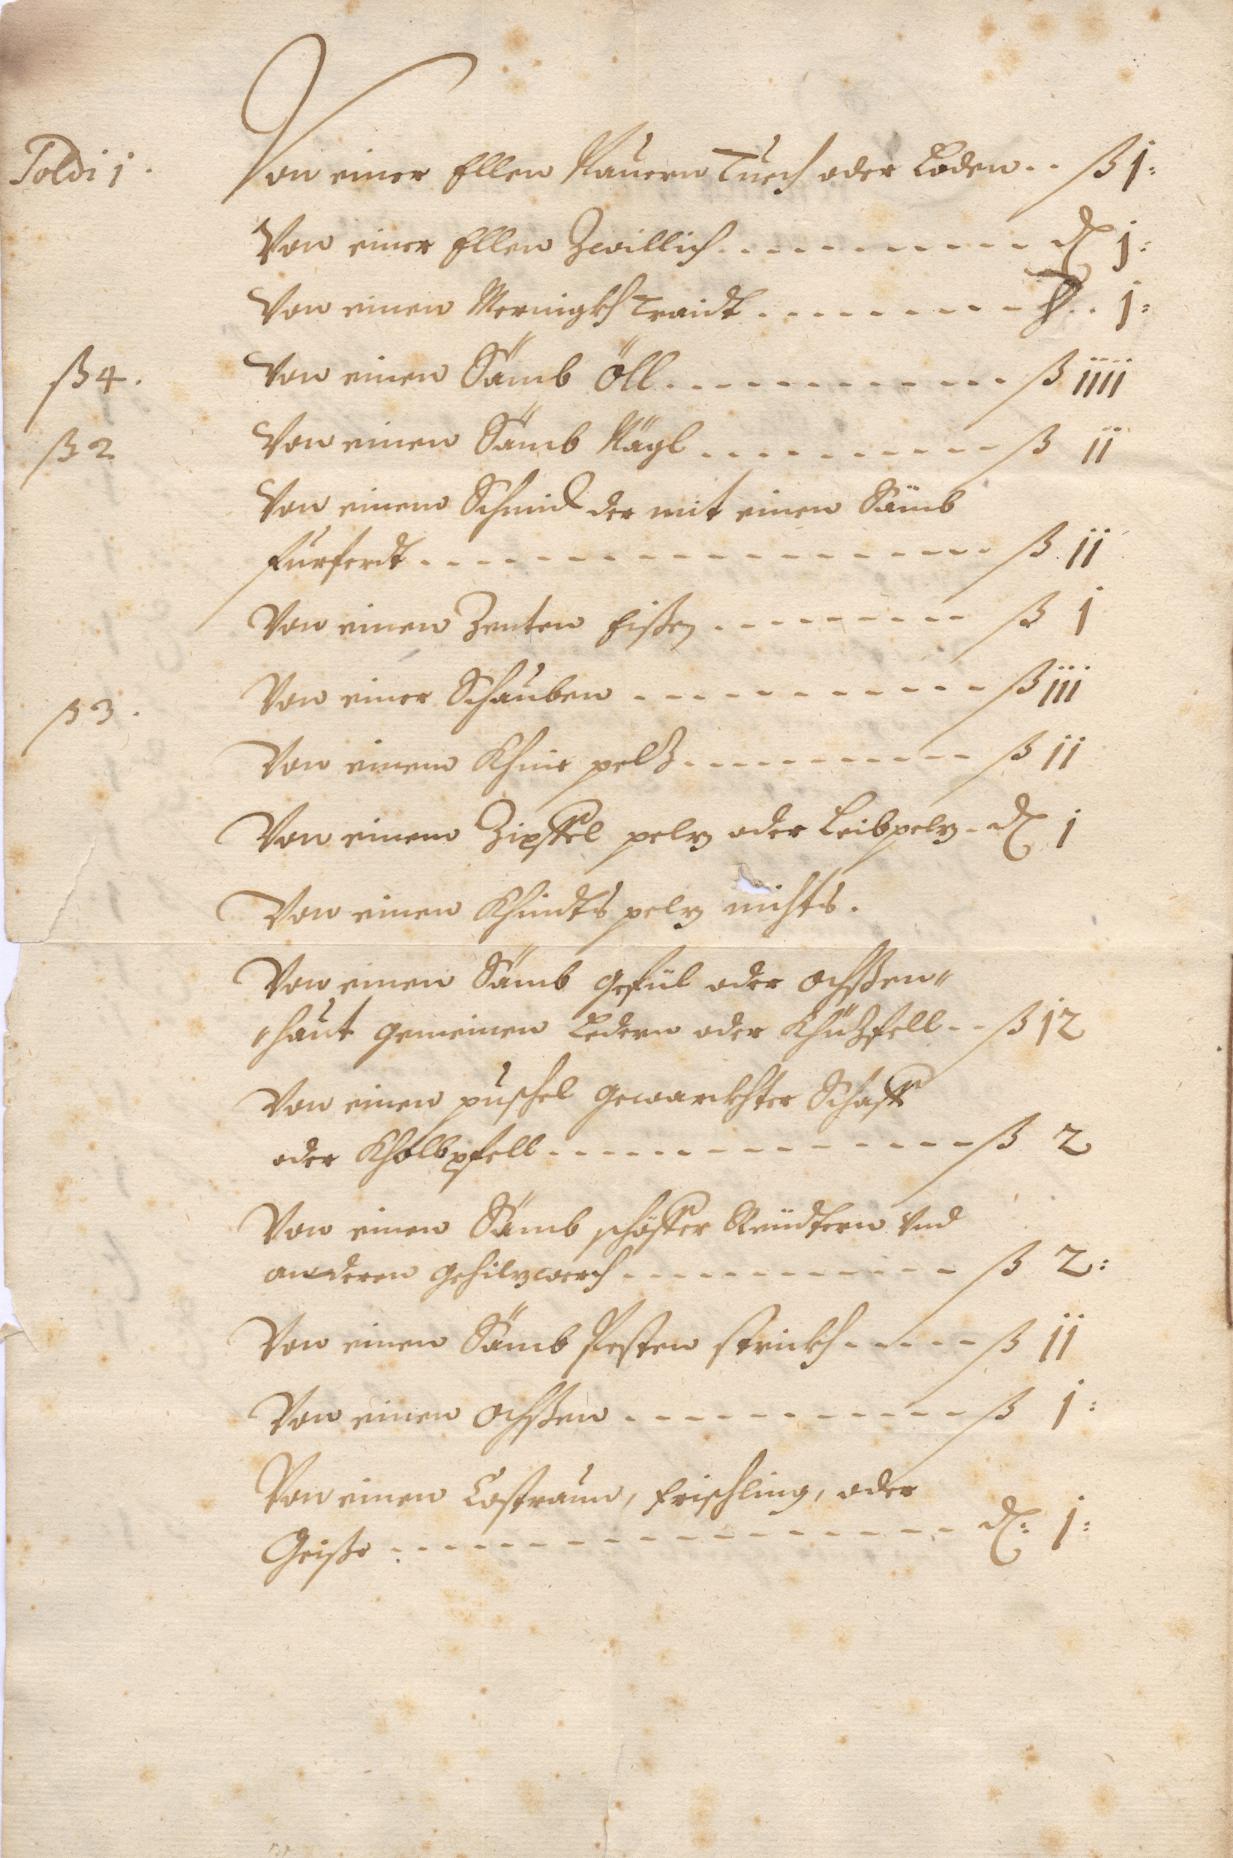 Soldi j. Von einer Ellen Rauern Tuech oder Loden .. ß j:
Von einer Ellen Zwillich . . . . . . . . . . d j:
Von einen Mernigkh Traidt . . . . . . . . . j:
ß 4. Von einen Sämb Öll . . . . . . . . . . ß iiii
ß 2 Von einen Sämb Nägl . . . . . . . . . ß ii
Von einem Schmid der mit einen Sämb
furferdt . . . . . . . . . . . . . . . ß ii
Von einen Zenten Eißen . . . . . . . . . ß i
ß 3. Von einer Schauben . . . . . . . . . . ß iii
Von einem Khüre pelz . . . . . . . . . ß ii
Von einem Zipffel pelz oder Leibpelz . d i
Von einen Khindts pelz nichts.
Von einen Sämb gefül oder Ochßen"
"haut gemeinen Ledern oder Khüzfell . . ß 12
Von einen puschel gewarckhter Schaff
oder Kholbpfell . . . . . . . . . . . . ß 2
Von einen Sämb schäffer Reüdtern Vnd
anderen gehilzwerch . . . . . . . . . . ß 2:
Von einen Sämb Pesten strickh . . . . . ß ii
Von einen Ochßen . . . . . . . . . . . ß j:
Von einen Castraun, frischling, oder
Geiße . . . . . . . . . . . . . . . d: j: